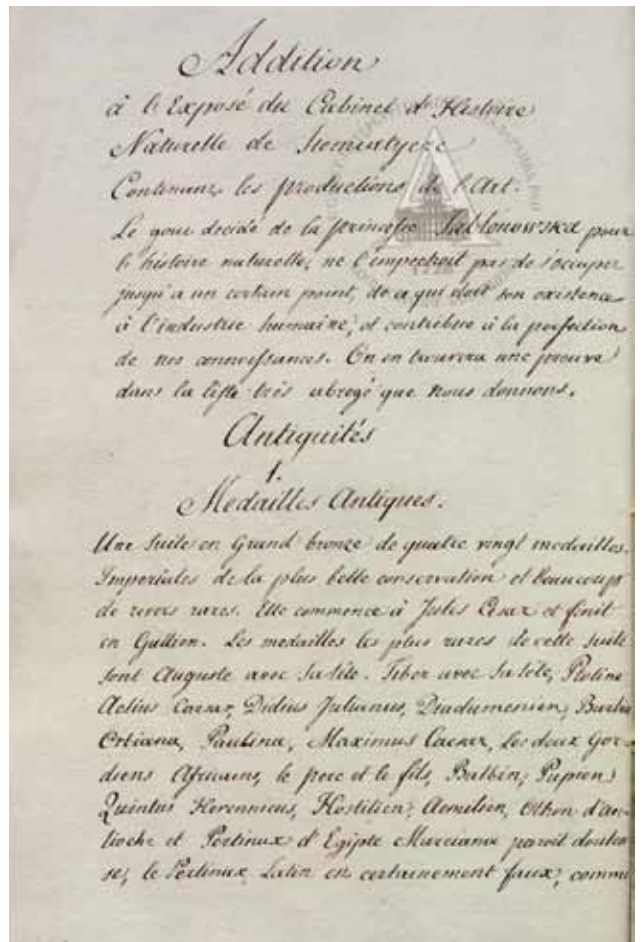 Addition
à l'Exposé du Cabinet d'Histoire
Naturelle de Siemiatycze
Contenant les productions de l'Art.
Le gout decidé de la princesse Jabłonowska pour
l'histoire naturelle, ne l'empechoit pas de s'occuper
jusqu'a un certain point, de ce qui doit son existence
à l'industrie humaine, et contribue à la perfection
de nos connoissances. On en trouvera une preuve
dans la liste très abregé que nous donnons.
Antiquités
1.
Medailles Antiques.
Une suite en Grand bronze de quatre vingt medailles
Imperiales de la plus belle conservation et beaucoup
de revers rares. Elle commence à Jules Cesar et finit
en Gallien. Les medailles les plus rares de cette suite
sont Auguste avec sa tête. Tiber avec sa tête, Plotine
Aelius Caesar, Didius Julianus, Diadumenien,
Orbiana, Paulina, Maximus Caesar, les deux Gor-
diens Africains, le pere et le fils, Balbin, Pupien
Quintus Herennius, Hostilien, Aemilien, Othon d'An-
tioche et Pertinax d'Egipte Marciana paroit douteu-
se, le Pertinax Latin est certainement faux, comme